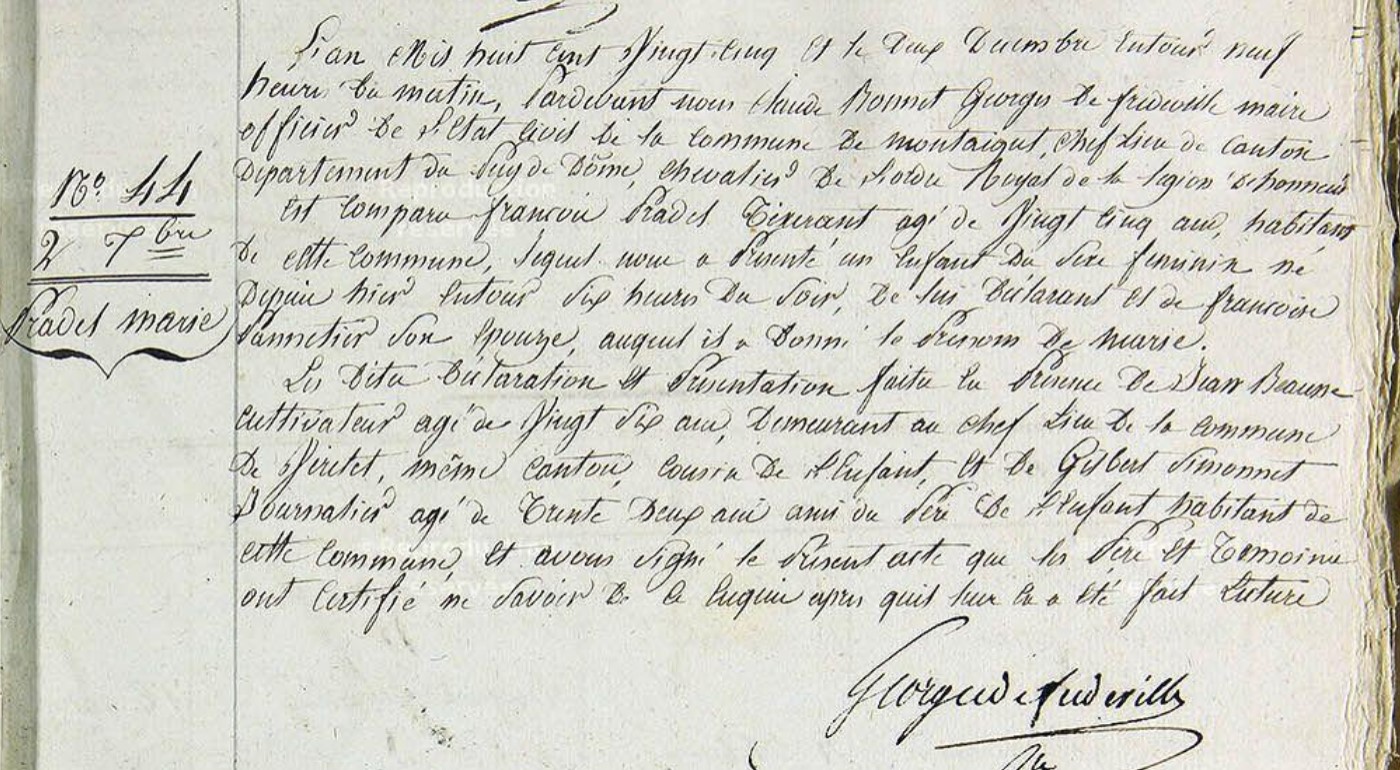 L'an Mis huit cent Vingt-cinq Et le Deux Decembre Entour neuf
heures Du matin, Pardevant nous Claude Bonnet Georges De fredeville maire
officier De l'Etat Civil De la Commune De montaigut, chef Lieu de Canton
Departement du Puy de Dôme, chevalier De l'ordre Royal de la legion D'honneur
Est Comparu francois Pradel Tixerant agé de Vingt Cinq ans, habitant
N.° 44
2 7bre
Pradel marie
De cette Commune, lequel nous a Présenté un Enfant Du Sexe feminin né
Depuis hier Entour Six heures Du Soir, De lui Déclarant Et de francoise
Pannetier Son Epouze, auquel il a Donné le Prenom De marie.
Les Dites Déclaration Et Présentation faites En Présence De Jean Beaune
Cultivateur agé de Vingt Six ans, Demeurant au chef Lieu De la Commune
De Virlet, même Canton, Cousin De l'Enfant, Et De Gilbert Simonnet
Journalier agé de Trente Deux ans ami du Père De l'Enfant habitant de
cette Commune, Et avons Signé le Présent acte que les Père Et Temoins
ont Certifié ne Savoir De Ce Enquis apres quil leur En a Eté fait Lecture
Georges de fredeville
Reproduction
réservée